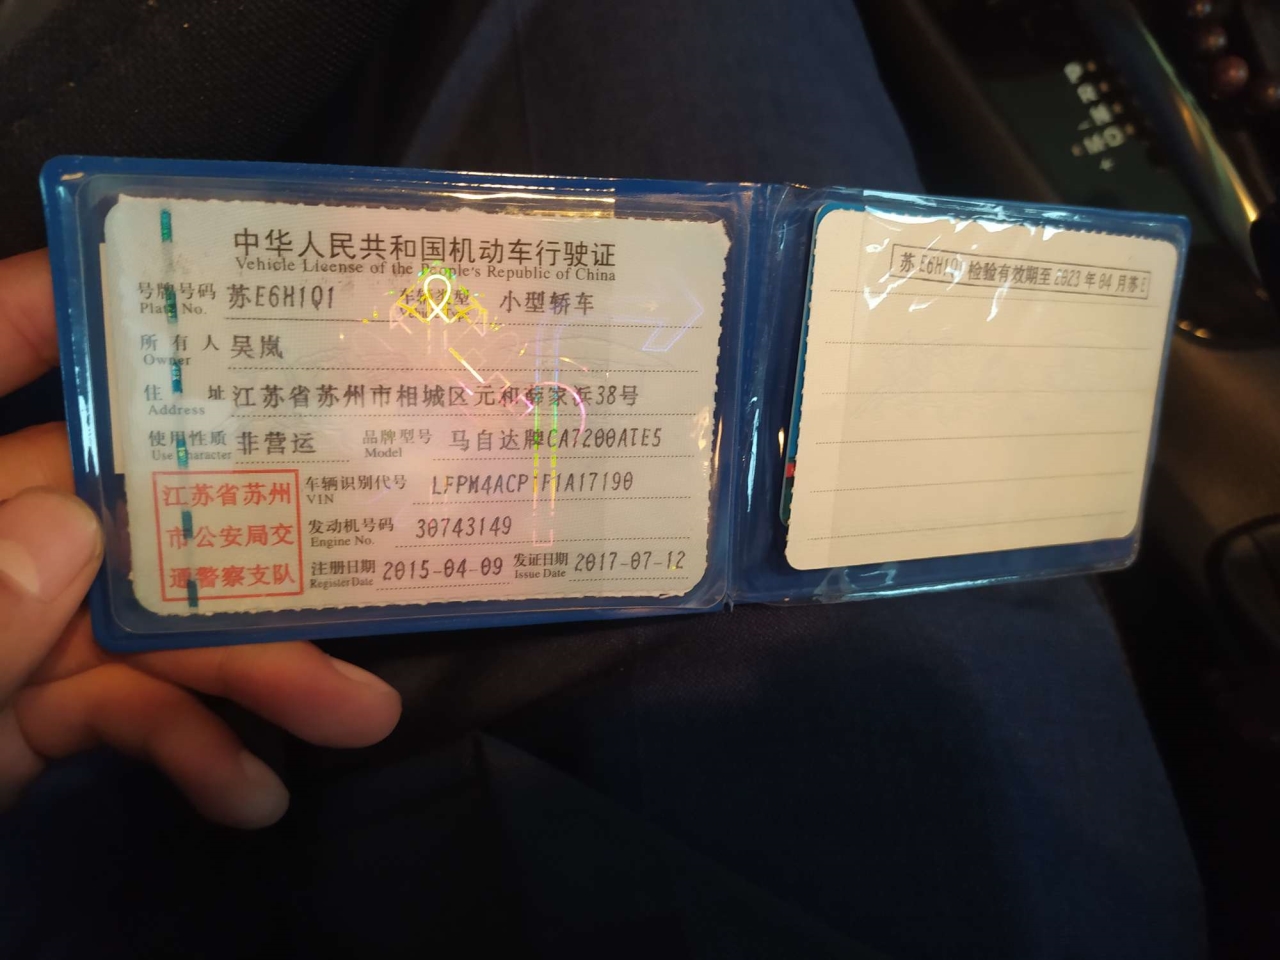 中华人民共和国机动车行驶证
Vehicle License of the People's Republic of China
号牌号码 苏E6H1Q1 车辆类型 小型轿车
Plate No.
所有人 吴岚
Owner
住址 江苏省苏州市相城区元和薛家浜38号
Address
使用性质 非营运 品牌型号 马自达牌CA7200ATE5
Use Character Model
江苏省苏州
市公安局交
通警察支队
车辆识别代号 LFPM4ACP1F1A17190
VIN
发动机号码 30743149
Engine No.
注册日期 2015-04-09 发证日期 2017-07-12
Register Date Issue Date
苏E6H1Q1检验有效期至2023年04月苏E
P
R
N
M